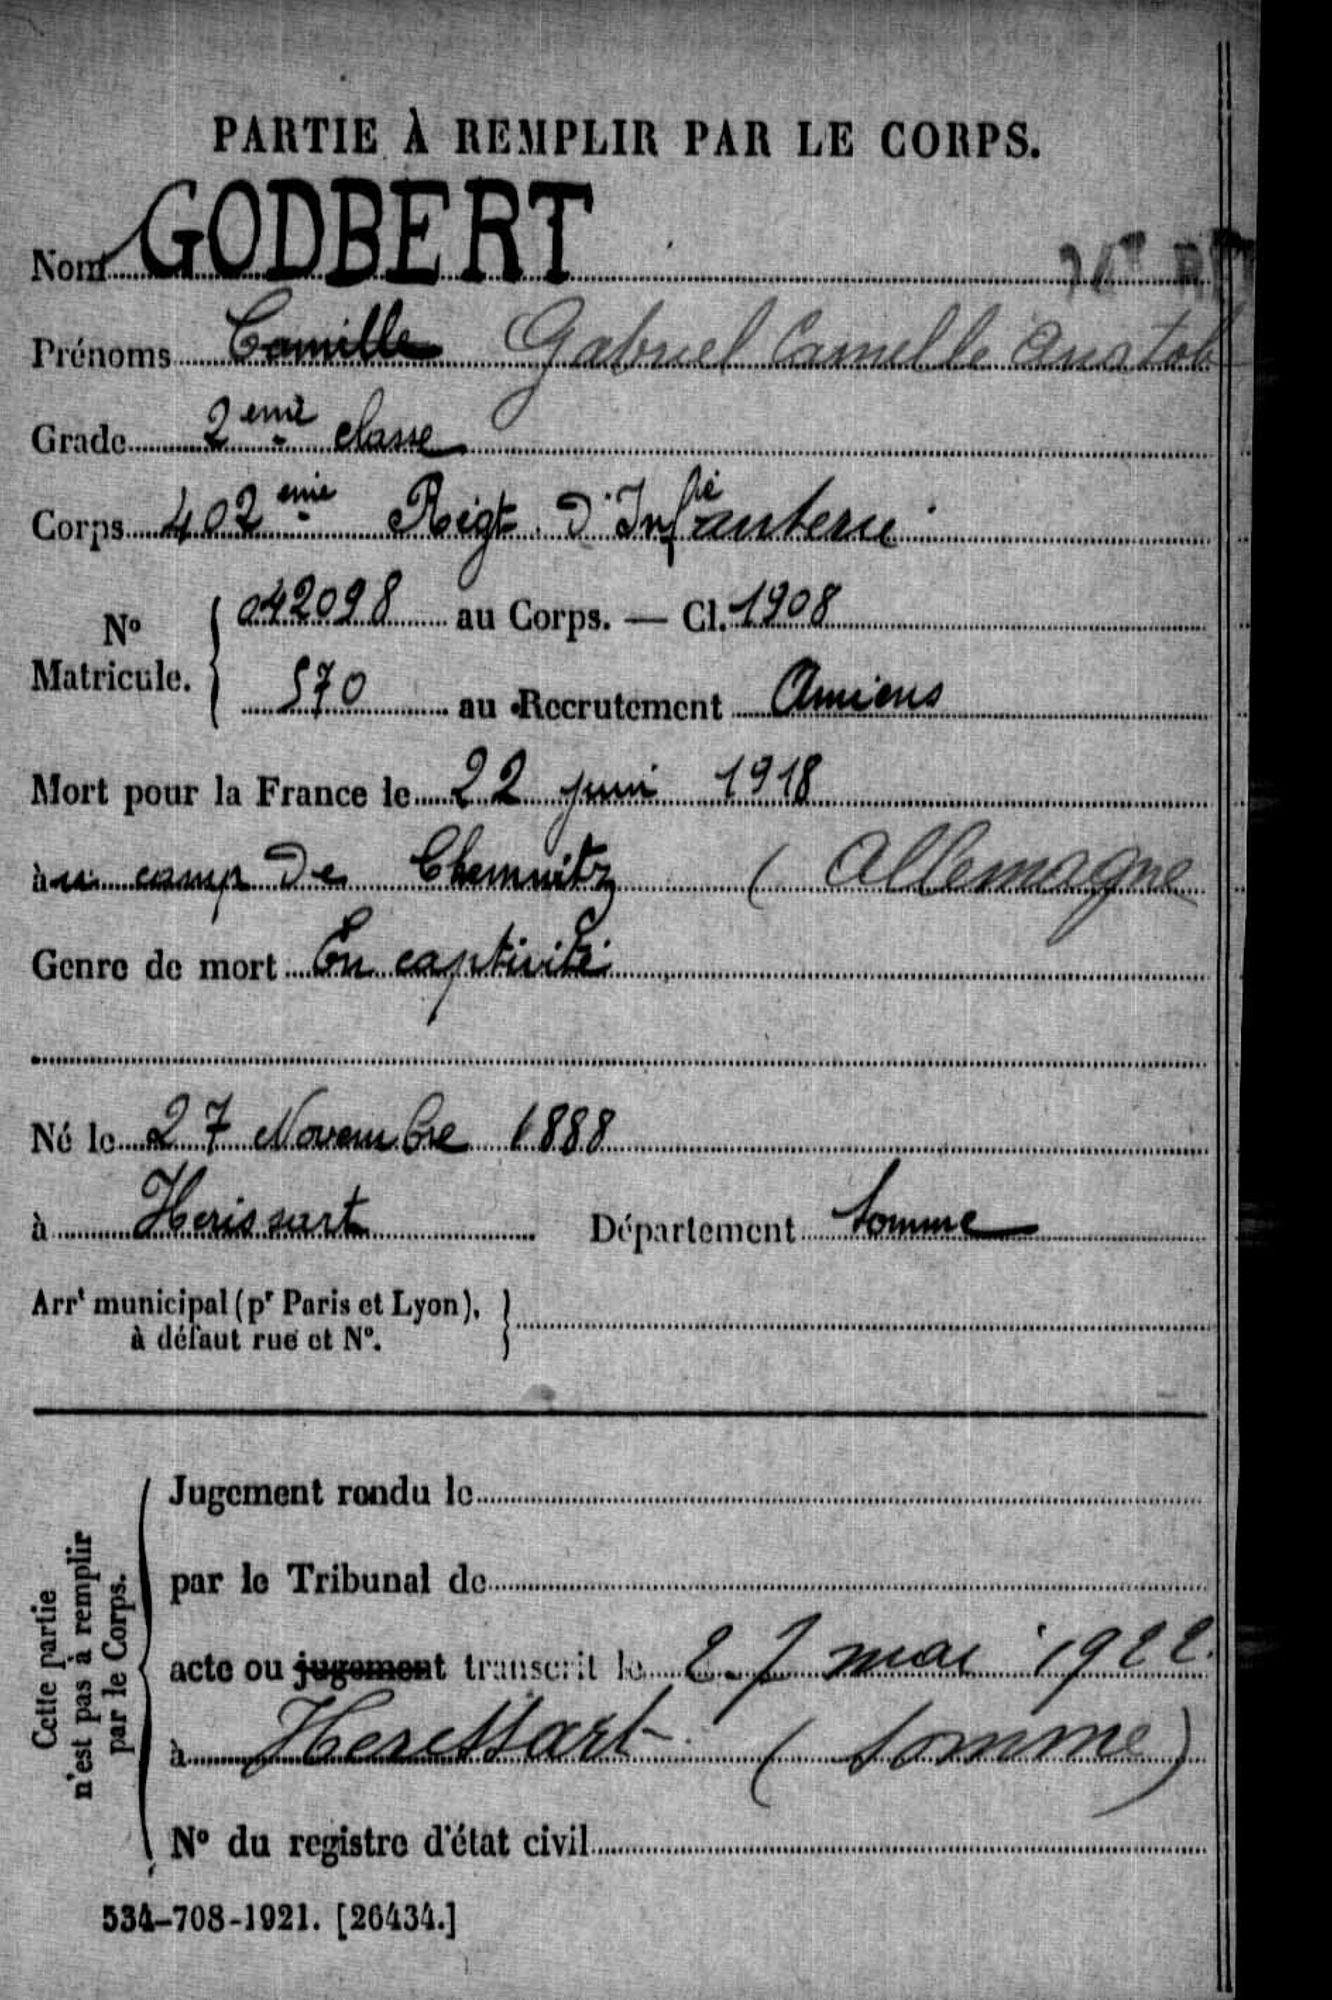 PARTIE À REMPLIR PAR LE CORPS.
Nom GODBERT
Prénoms Camille Gabriel Camille Anatol
Grade 2eme classe
Corps 402eme Régt d'Infanterie
N° Matricule. 042098 au Corps. — Cl. 1908
570 au Recrutement Amiens
Mort pour la France le 22 juin 1918
au camp de Chemnitz ( Allemagne
Genre de mort En captivité
Né le 27 Novembre 1888
à Herissart Département Somme
Arrt municipal (pr Paris et Lyon),
à défaut rue et N°.
Cette partie
n'est pas à remplir
par le Corps.
Jugement rendu le
par le Tribunal de
acte ou jugement transcrit le 27 mai 1922.
à Herissart ( Somme )
N° du registre d'état civil
534-708-1921. [26434.]